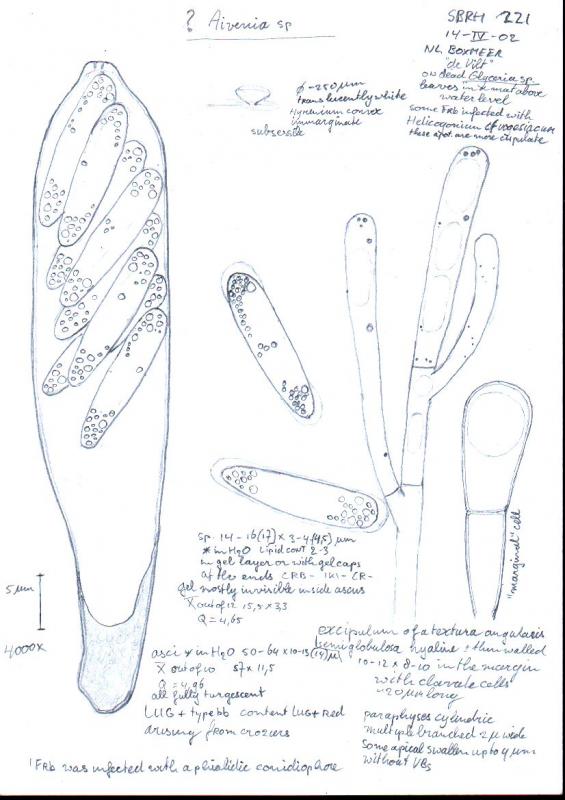 ? Aivenia sp
SBRH 221
14-IV-02
NL BOXMEER
"de Vilt"
on dead Glyceria sp.
leaves in mat above
water level
some FRb infected with
Helicogonium cf
these apot. are more crispulate
φ -250 µm
translucently white
Hymenium convex
immarginate
subsessile
sp. 14-16(17) x 3-4(4,5) µm
* in H2O Lipid cont 2-3
in gel layer or with gel caps
at the ends CRB- IKI- CR-
gel mostly invisible inside ascus
X out of 12 15,5 x 3,3
Q = 4,65
5 µm
4000x
asci * in H2O 50-64 x 10-13(14) µ
X out of 10 57 x 11,5
Q = 4,96
all fully turgescent
LUG + type bb content LUG + Red
arising from croziers
"marginal" cell
excipulum of a textura angularis
hemiglobulosa hyaline ± thin walled
10-12 x 8-10 in the margin
with clavate cells
~20 µm long
paraphyses cylindric
multiple branched 2µ wide
Some apical swollen up to 4 µm
without VBs
! FRb was infected with a phialidic conidiophore